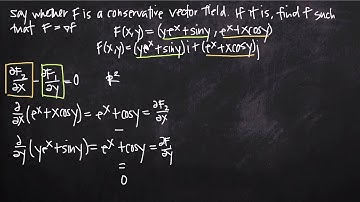 say whether F is a conservative vector field. If it is, find f such
that F = ∇f
F(x,y) = ⟨ye^x + siny, e^x + xcosy⟩
F(x,y) = (ye^x + siny)i + (e^x + xcosy)j
∂F₂/∂x - ∂F₁/∂y = 0 ℝ²
∂/∂x (e^x + xcosy) = e^x + cosy = ∂F₂/∂x
−
∂/∂y (ye^x + siny) = e^x + cosy = ∂F/∂y
=
0